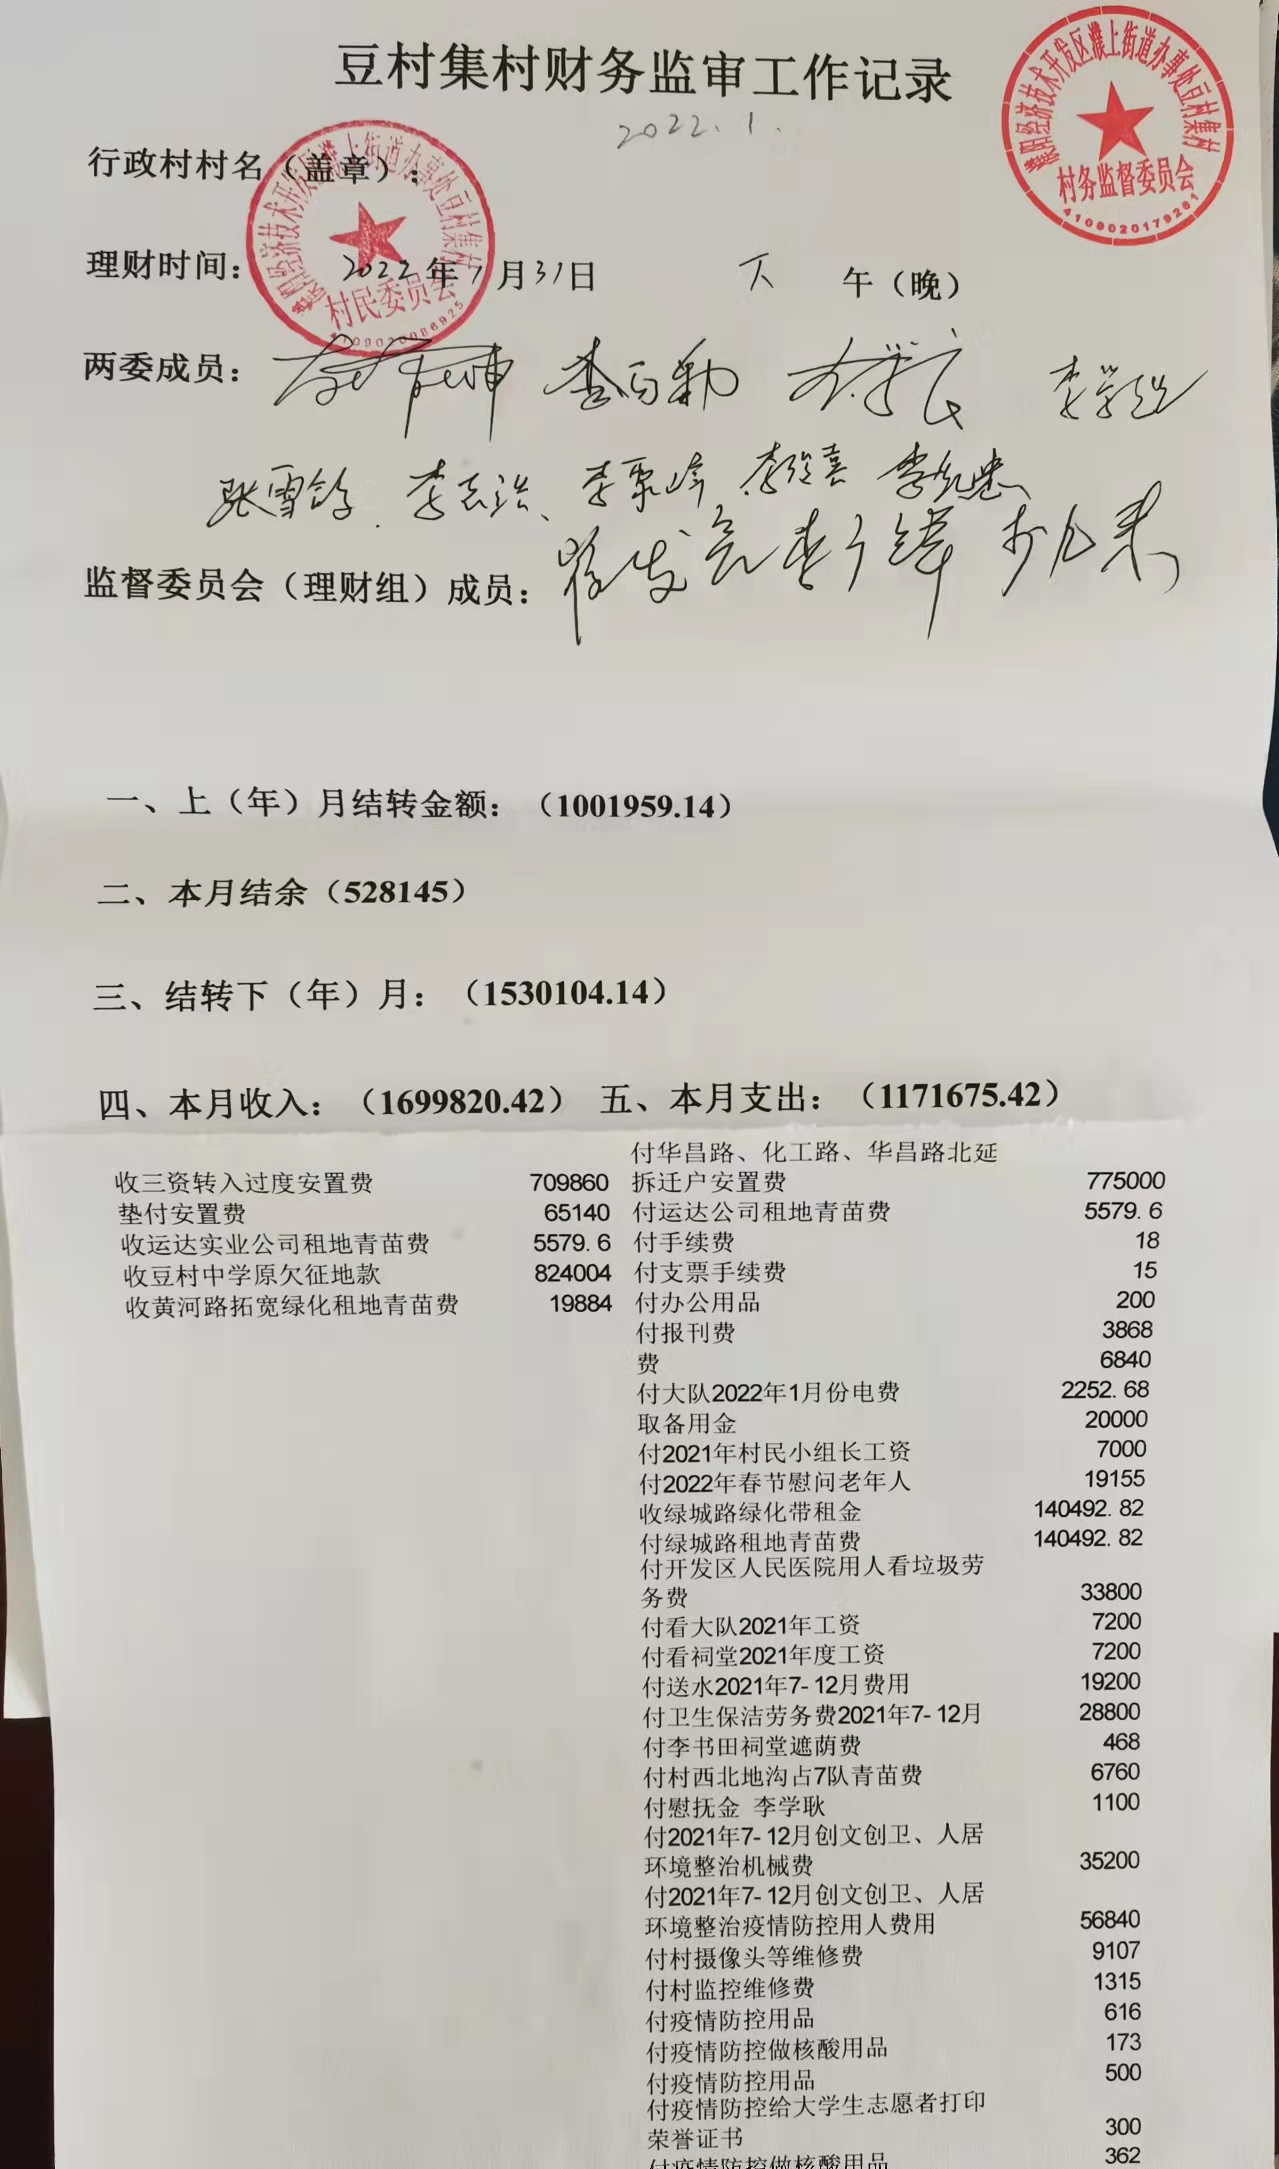 豆村集村财务监审工作记录
2022.1.
濮阳经济技术开发区濮上街道办事处豆村集村
村务监督委员会
4109020179281
行政村村名（盖章）：
濮阳经济技术开发区濮上街道办事处豆村集村
村民委员会
理财时间： 2022年1月31日 下 午（晚）
两委成员： 李百勤
李志治、
监督委员会（理财组）成员：
一、上（年）月结转金额：（1001959.14）
二、本月结余（528145）
三、结转下（年）月：（1530104.14）
四、本月收入：（1699820.42） 五、本月支出：（1171675.42）
收三资转入过度安置费 709860
垫付安置费 65140
收运达实业公司租地青苗费 5579.6
收豆村中学原欠征地款 824004
收黄河路拓宽绿化租地青苗费 19884
付华昌路、化工路、华昌路北延
拆迁户安置费 775000
付运达公司租地青苗费 5579.6
付手续费 18
付支票手续费 15
付办公用品 200
付报刊费 3868
费 6840
付大队2022年1月份电费 2252.68
取备用金 20000
付2021年村民小组长工资 7000
付2022年春节慰问老年人 19155
收绿城路绿化带租金 140492.82
付绿城路租地青苗费 140492.82
付开发区人民医院用人看垃圾劳
务费 33800
付看大队2021年工资 7200
付看祠堂2021年度工资 7200
付送水2021年7-12月费用 19200
付卫生保洁劳务费2021年7-12月 28800
付李书田祠堂遮荫费 468
付村西北地沟占7队青苗费 6760
付慰抚金 李学耿 1100
付2021年7-12月创文创卫、人居
环境整治机械费 35200
付2021年7-12月创文创卫、人居
环境整治疫情防控用人费用 56840
付村摄像头等维修费 9107
付村监控维修费 1315
付疫情防控用品 616
付疫情防控做核酸用品 173
付疫情防控用品 500
付疫情防控给大学生志愿者打印
荣誉证书 300
付疫情防控做核酸用品 362